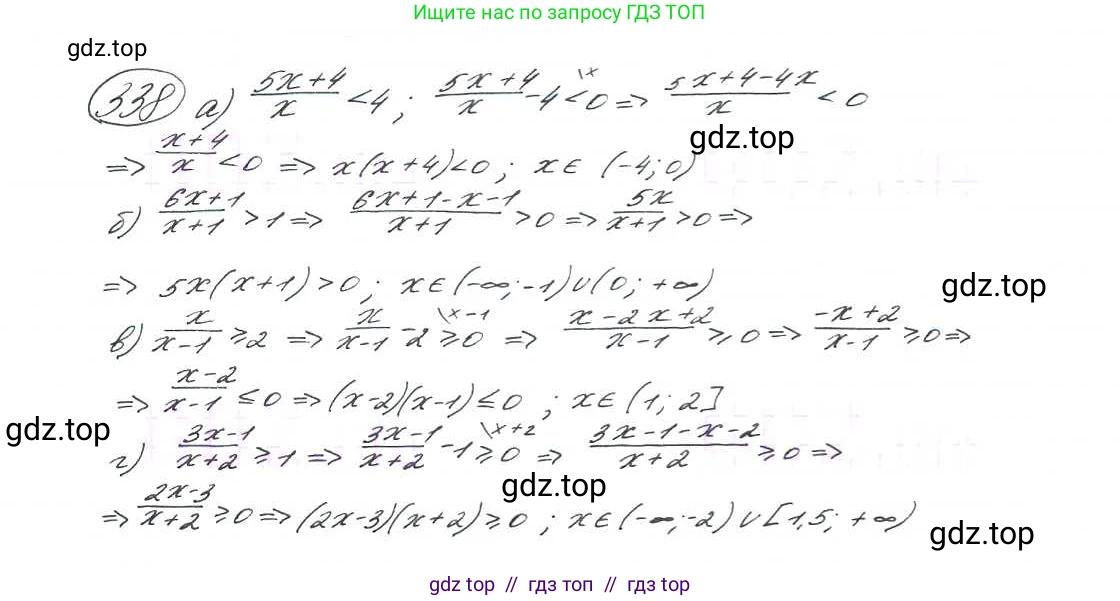 Ищите нас по запросу ГДЗ ТОП
gdz.top
338 а) (5x+4)/x < 4 ; (5x+4)/x - 4 \x < 0 => (5x+4-4x)/x < 0
gdz.top
=> (x+4)/x < 0 => x(x+4)<0 ; x ∈ (-4; 0)
б) (6x+1)/(x+1) > 1 => (6x+1-x-1)/(x+1) > 0 => 5x/(x+1) > 0 =>
=> 5x(x+1)>0 ; x ∈ (-∞; -1) ∪ (0; +∞)
gdz.top
в) x/(x-1) ≥ 2 => x/(x-1) - 2 \x-1 ≥ 0 => (x-2x+2)/(x-1) ≥ 0 => (-x+2)/(x-1) ≥ 0 =>
=> (x-2)/(x-1) ≤ 0 => (x-2)(x-1) ≤ 0 ; x ∈ (1; 2]
gdz.top
г) (3x-1)/(x+2) ≥ 1 => (3x-1)/(x+2) - 1 \x+2 ≥ 0 => (3x-1-x-2)/(x+2) ≥ 0 =>
gdz.top
=> (2x-3)/(x+2) ≥ 0 => (2x-3)(x+2) ≥ 0 ; x ∈ (-∞; -2) ∪ [1,5; +∞)
gdz.top
gdz top // гдз топ // gdz top